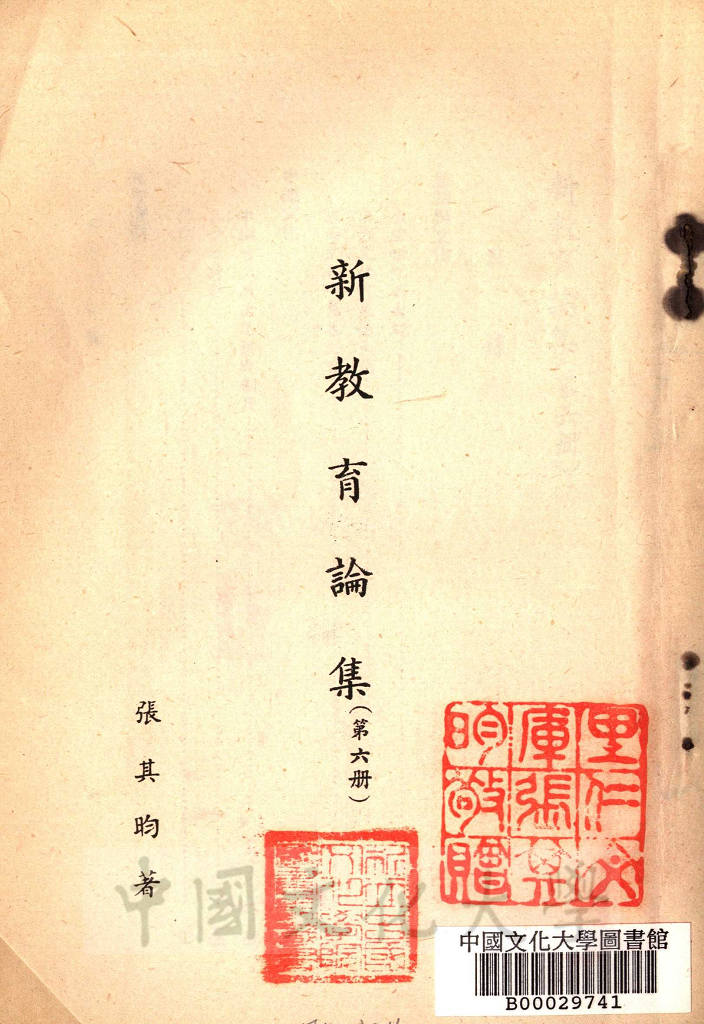 新教育論集（第六册）
張其昀著
里仁
庫張其
昀敬贈
中國文化大學
中國文化大學圖書館
B00029741